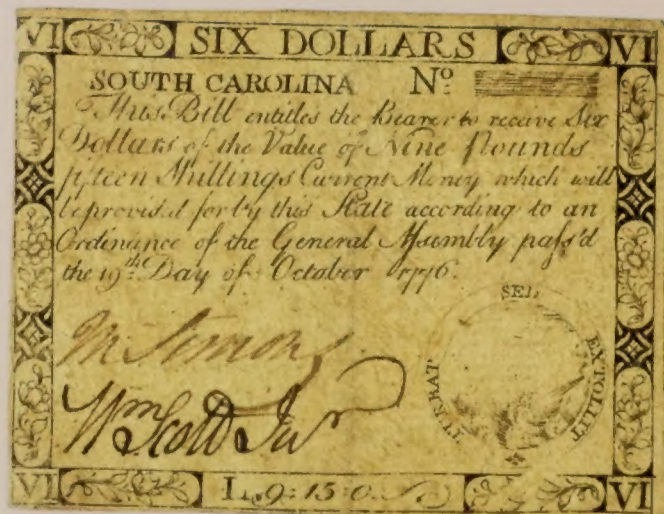 VI SIX DOLLARS VI
SOUTH CAROLINA Nº
This Bill entitles the Bearer to receive Six
Dollars of the Value of Nine Pounds
fifteen Shillings Current Money which will
be provided for by this State according to an
Ordinance of the General Assembly pass'd
the 19th Day of October 1776.
SED
EXTOLLIT
TURBAT
Wm Scott Junr
VI L. 9:15:0. VI